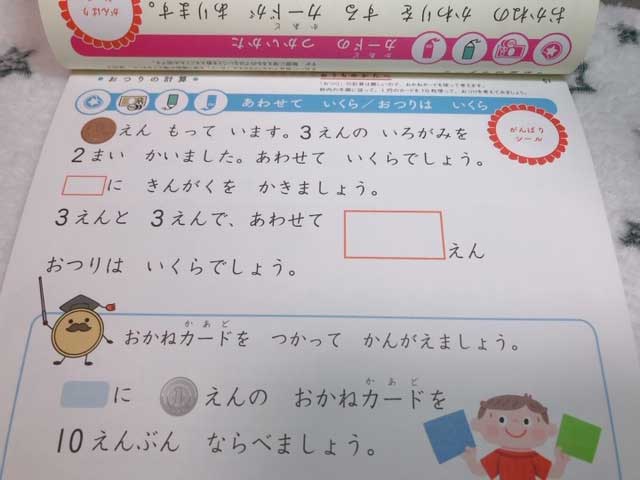 おかねの かわりを する カードが あります。
かあど
カードの つかいかた
がんばり
おつりの計算
あわせて いくら/おつりは いくら
がんばり
シール
えん もって います。3えんの いろがみを
2まい かいました。あわせて いくらでしょう。
に きんがくを かきましょう。
3えんと 3えんで、あわせて
えん
おつりは いくらでしょう。
かあど
おかねカードを つかって かんがえましょう。
かあど
に えんの おかねカードを
10えんぶん ならべましょう。